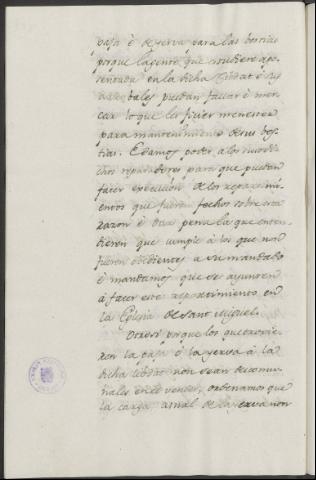 paja è de yerva para las bestias
porque la gente que estudiere apo-
sentada en la dicha Ciudat è sus
arrabales puedan fallar è mer-
car lo que les ficier menester
para mantenimiento de sus bes-
tias. E damos poder a los suso di-
chos reparadores para que puedan
facer execucion de los repartimi-
entos que fueren fechos sobre esta
razon è dar pena la que enten-
dieren que cumple à los que non
fueren obedientes a su mandado
è mandamos que se ayunten
à facer este repartimiento en
la Eglesia de Sant Miguel.
Otrosi porque los que troxie-
ren la paja è la yerva à la
dicha cibdat non sean descomu-
nales en el vender, ordenamos que
la carga asnal de la yerva non